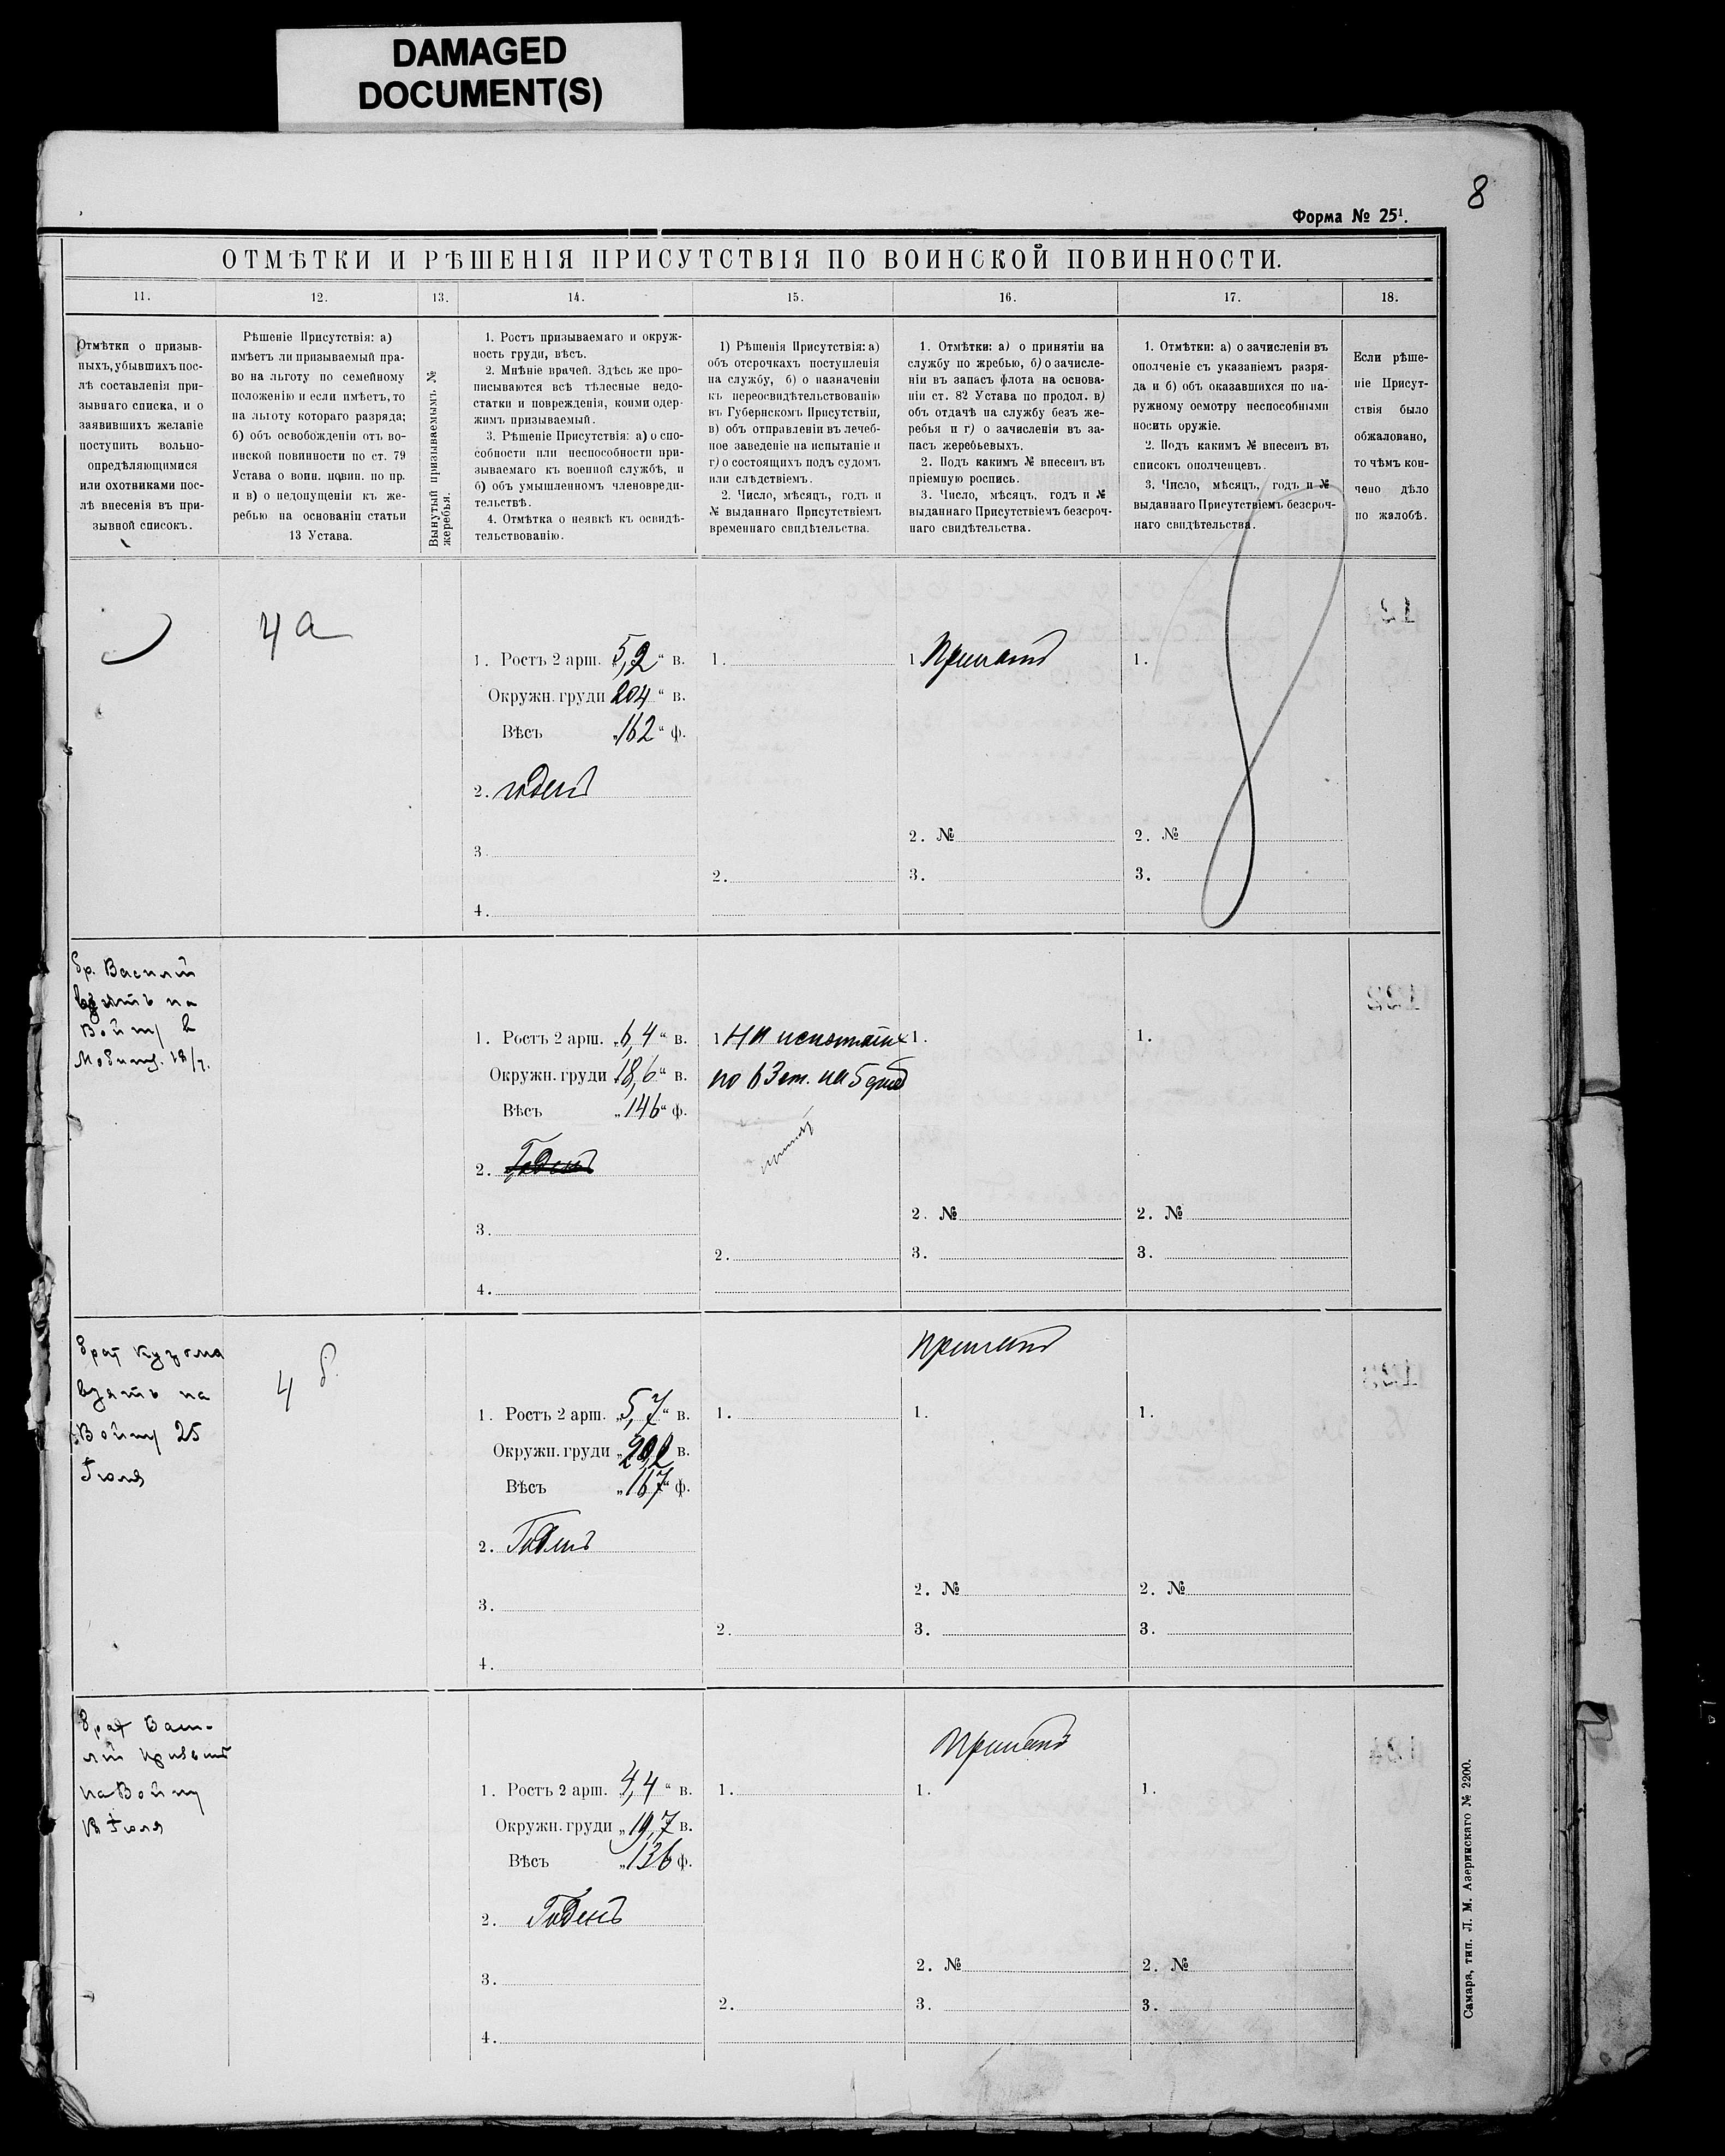 DAMAGED
DOCUMENT(S)
8
Форма № 25¹.
ОТМѢТКИ И РѢШЕНІЯ ПРИСУТСТВІЯ ПО ВОИНСКОЙ ПОВИННОСТИ.
11. 12. 13. 14. 15. 16. 17. 18.
Отмѣтки о призыв-
ныхъ, убывшихъ пос-
лѣ составленія при-
зывнаго списка, и о
заявившихъ желаніе
поступить вольно-
опредѣляющимися
или охотниками пос-
лѣ внесенія въ при-
зывной списокъ.
Рѣшеніе Присутствія: а)
имѣетъ ли призываемый пра-
во на льготу по семейному
положенію и если имѣетъ, то
на льготу котораго разряда;
б) объ освобожденіи отъ во-
инской повинности по ст. 79
Устава о воин. повин. по пр.
и в) о недопущеніи къ же-
ребью на основаніи статьи
13 Устава.
Вынутый призываемымъ №
жеребья.
1. Ростъ призываемаго и окруж-
ность груди, вѣсъ.
2. Мнѣніе врачей. Здѣсь же про-
писываются всѣ тѣлесные недо-
статки и поврежденія, коими одер-
жимъ призываемый.
3. Рѣшеніе Присутствія: а) о спо-
собности или неспособности при-
зываемаго къ военной службѣ, и
б) объ умышленномъ членовреди-
тельствѣ.
4. Отмѣтка о неявкѣ къ освидѣ-
тельствованію.
1) Рѣшенія Присутствія: а)
объ отсрочкахъ поступленія
на службу, б) о назначеніи
къ переосвидѣтельствованію
въ Губернскомъ Присутствіи,
в) объ отправленіи въ лечеб-
ное заведеніе на испытаніе и
г) о состоящихъ подъ судомъ
или слѣдствіемъ.
2. Число, мѣсяцъ, годъ и
№ выданнаго Присутствіемъ
временнаго свидѣтельства.
1. Отмѣтки: а) о принятіи на
службу по жребью, б) о зачисле-
ніи въ запасъ флота на основа-
ніи ст. 82 Устава по продол. в)
объ отдачѣ на службу безъ же-
ребья и г) о зачисленіи въ за-
пасъ жеребьевыхъ.
2. Подъ какимъ № внесенъ въ
пріемную роспись.
3. Число, мѣсяцъ, годъ и №
выданнаго Присутствіемъ безсроч-
наго свидѣтельства.
1. Отмѣтки: а) о зачисленіи въ
ополченіе съ указаніемъ разря-
да и б) объ оказавшихся по на-
ружному осмотру неспособными
носить оружіе.
2. Подъ какимъ № внесенъ въ
списокъ ополченцевъ.
3. Число, мѣсяцъ, годъ и №
выданнаго Присутствіемъ безсроч-
наго свидѣтельства.
Если рѣше-
ніе Присут-
ствія было
обжаловано,
то чѣмъ кон-
чено дѣло
по жалобѣ.
4 а
1. Ростъ 2 арш. 5,2 в. 1. 1. Принятъ 1.
Окружн. груди 204 в.
Вѣсъ 162 ф.
2. годенъ
2. № 2. №
3.
2. 3. 3.
4.
бр. Василій
взятъ на
Войну в
Мобилиз. 18/7.
1. Ростъ 2 арш. 6,4 в. 1. На испытаніе 1. 1.
Окружн. груди 18,6 в. по 63 ст. на 5 дней
Вѣсъ 146 ф.
2. Годенъ
2. № 2. №
3.
2. 3. 3.
4.
брат Кузьма
взятъ на
Войну 25
Іюля
4 б.
Принятъ
1. Ростъ 2 арш. 5,7 в. 1. 1. 1.
Окружн. груди в.
Вѣсъ 167 ф.
2. Годенъ
2. № 2. №
3.
2. 3. 3.
4.
брат Васи-
лій
на Войну
Іюля
Принятъ
1. Ростъ 2 арш. 4,4 в. 1. 1. 1.
Окружн. груди 19,7 в.
Вѣсъ 136 ф.
2. Годенъ
2. № 2. №
3.
2. 3. 3.
4.
Самара, тип. Л. М. Азеринскаго № 2200.